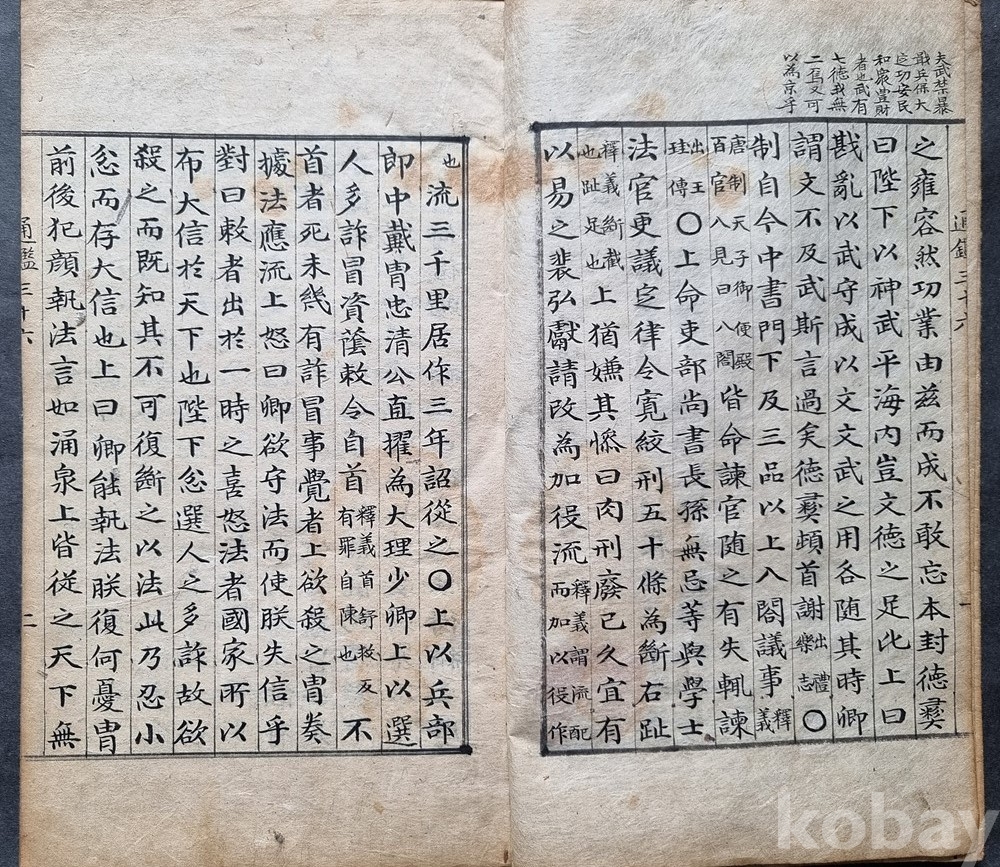 夫武禁暴
戢兵保大
定功安民
和衆豊財
者也武有
七德我無
二焉又可
以為京乎
通鑑三十六 一
之雍容然功業由茲而成不敢忘本封德彛
曰陛下以神武平海内豈文德之足比上曰
戡亂以武守成以文文武之用各随其時卿
謂文不及武斯言過矣德彛頓首謝出禮樂志〇
制自今中書門下及三品以上入閤議事釋義
唐制天子御便殿百官入見曰入閤皆命諫官随之有失輒諫
出王珪傳〇上命吏部尚書長孫無忌等與學士
法官更議定律令寛絞刑五十條為斷右趾
釋義斷截也趾足也上猶嫌其慘曰肉刑廢已久宜有
以易之裴弘獻請改為加役流釋義謂流配而加以役作
也流三千里居作三年詔從之〇上以兵部
郎中戴胄忠清公直擢為大理少卿上以選
人多詐冒資蔭敕令自首釋義首舒救反有罪自陳也不
首者死未幾有詐冒事覺者上欲殺之胄奏
據法應流上怒曰卿欲守法而使朕失信乎
對曰敕者出於一時之喜怒法者國家所以
布大信於天下也陛下忿選人之多詐故欲
殺之而既知其不可復斷之以法此乃忍小
忿而存大信也上曰卿能執法朕復何憂胄
前後犯顔執法言如涌泉上皆從之天下無
通鑑三十六 二